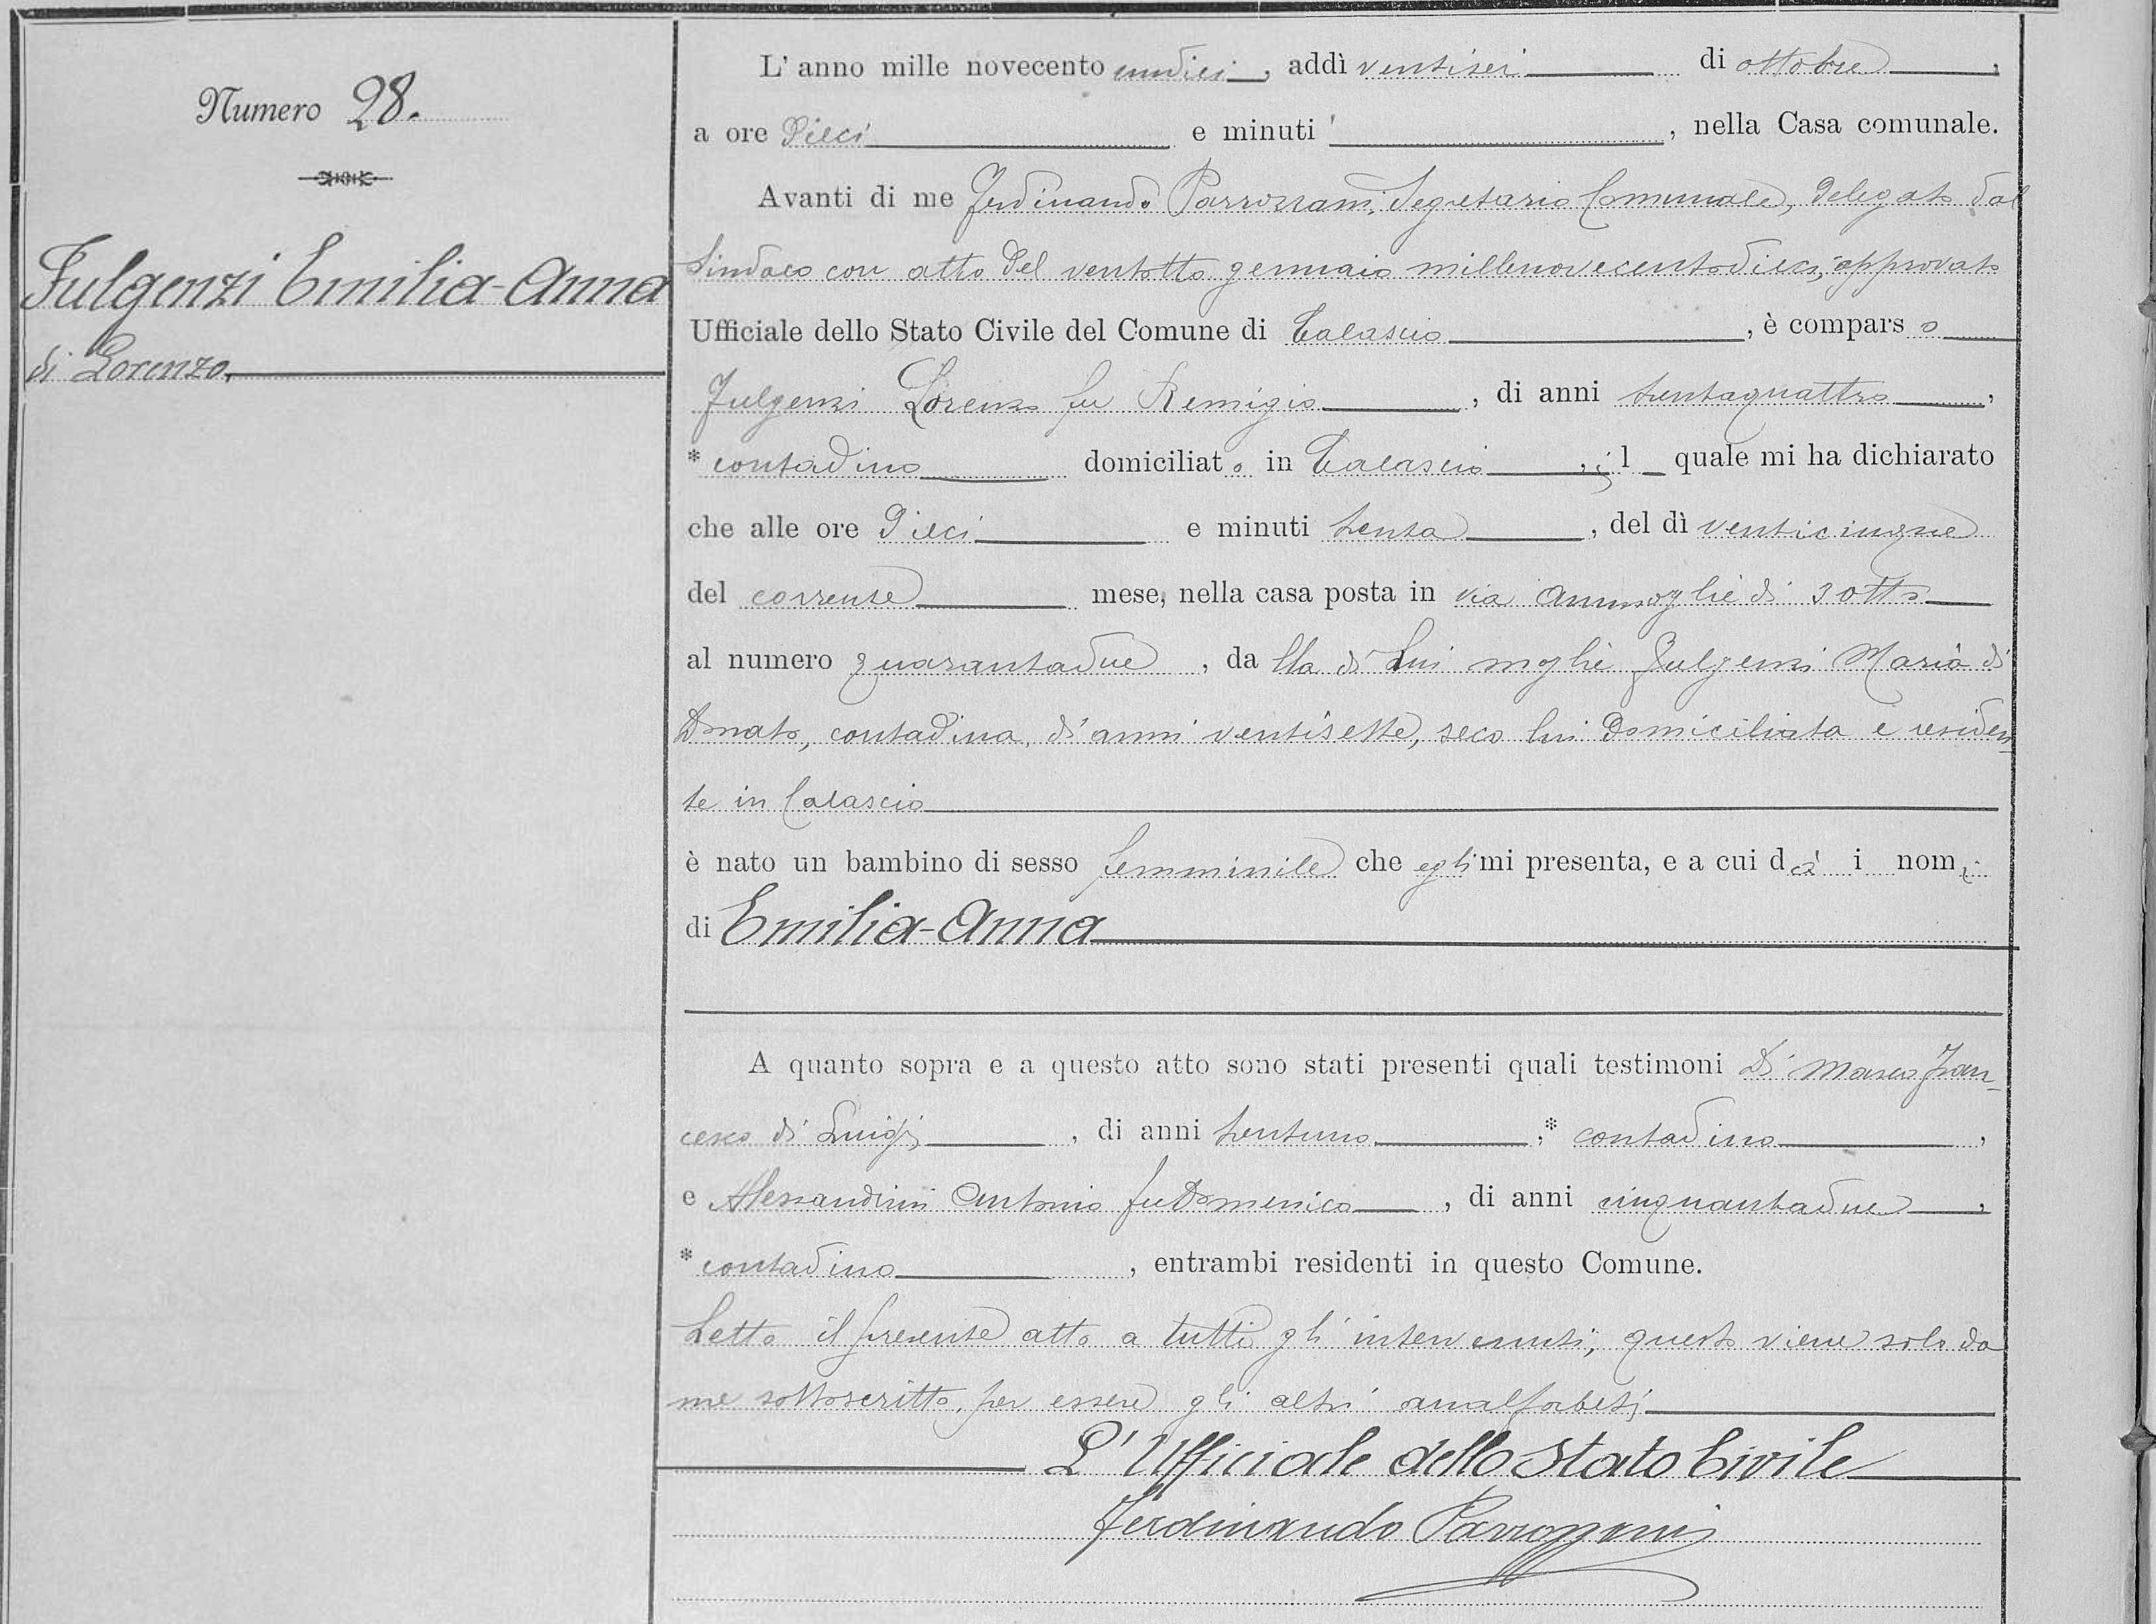 Numero 28.
Fulgenzi Emilia-Anna
di Lorenzo.
L'anno mille novecento undici, addì ventisei di ottobre,
a ore dieci e minuti, nella Casa comunale.
Avanti di me Ferdinando Parrozzani, Segretario Comunale, delegato dal
Sindaco con atto del ventotto gennaio millenovecentodieci, approvato
Ufficiale dello Stato Civile del Comune di Calascio, è comparso
Fulgenzi Lorenzo fu Remigio, di anni trentaquattro,
* contadino domiciliato in Calascio, il quale mi ha dichiarato
che alle ore dieci e minuti trenta, del dì venticinque
del corrente mese, nella casa posta in via di sotto
al numero quarantadue, da lla di Lui moglie Fulgenzi Maria di
Donato, contadina, di anni ventisette, seco lui domiciliata e residen-
te in Calascio
è nato un bambino di sesso femminile che egli mi presenta, e a cui dà i nomi
di Emilia-Anna
A quanto sopra e a questo atto sono stati presenti quali testimoni Di Marco Fran-
cesco di Luigi, di anni trentuno, * contadino,
e Alessandrini Antonio fu Domenico, di anni cinquantadue,
* contadino, entrambi residenti in questo Comune.
Letto il presente atto a tutti gli intervenuti, questo viene solo da
me sottoscritto, per essere gli altri analfabeti
L'Ufficiale dello Stato Civile
Ferdinando Parrozzani